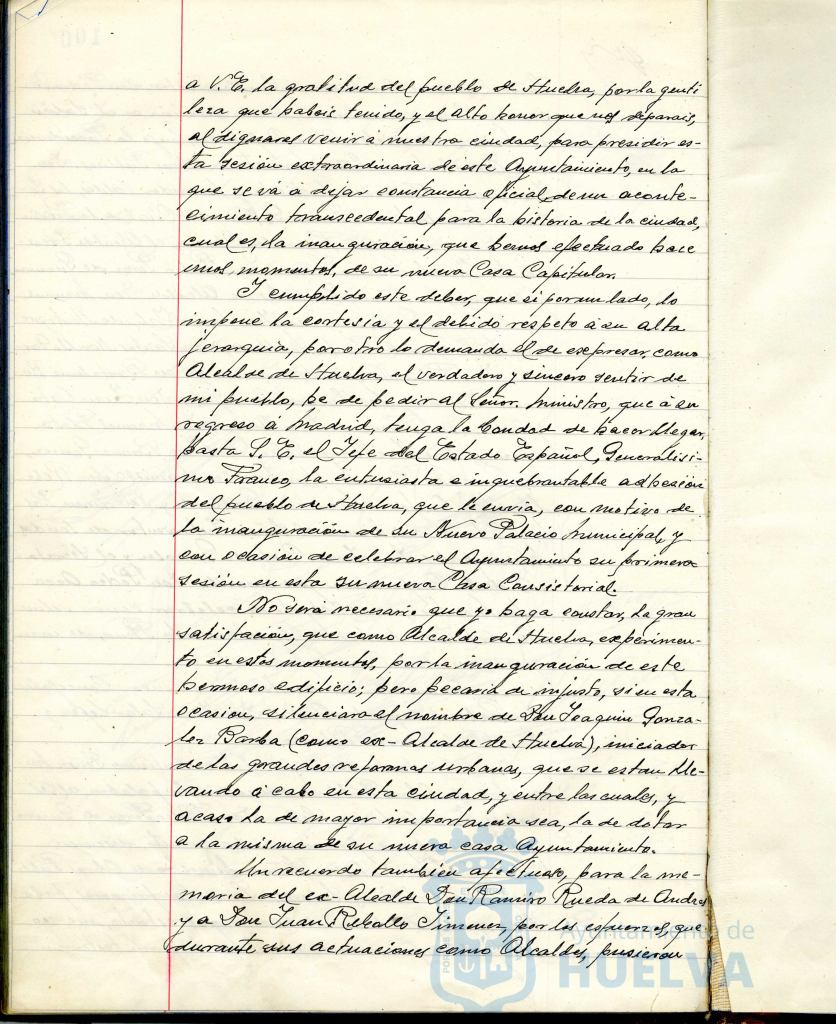 a V.E. la gratitud del pueblo de Huelva, por la genti
leza que habeis tenido, y el alto honor que nos deparais,
al dignaros venir á nuestra ciudad, para presidir es-
ta sesión extraordinaria de este Ayuntamiento, en la
que se vá á dejar constancia oficial, de un aconte-
cimiento transcedental para la historia de la ciudad,
cual es, la inauguración, que hemos efectuado hace
unos momentos, de su nueva Casa Capitular.
Y cumplido este deber, que si por un lado, lo
impone la cortesia y el debido respeto á su alta
jerarquia, por otro lo demanda el de expresar, como
Alcalde de Huelva, el verdadero y sincero sentir de
mi pueblo, he de pedir al Señor. Ministro, que á su
regreso á Madrid, tenga la bondad de hacer llegar,
hasta S. E. el Jefe del Estado Español, Generalisi-
mo Franco, la entusiasta e inquebrantable adhesión
del pueblo de Huelva, que le envia, con motivo de
la inauguración de su Nuevo Palacio Municipal, y
con ocasión de celebrar el Ayuntamiento su primera
sesión en esta su nueva Casa Consistorial.
No será necesario que yo haga constar, la gran
satisfación, que como Alcalde de Huelva, experimen-
to en estos momentos, por la inauguración de este
hermoso edificio; pero pecaria de injusto, si en esta
ocasion, silenciara el nombre de Don Joaquin Gonza-
lez Barba (como ex-Alcalde de Huelva), iniciador
de las grandes reformas urbanas, que se estan lle-
vando á cabo en esta ciudad, y entre las cuales, y
acaso la de mayor importancia sea, la de dotar
a la misma de su nueva casa Ayuntamiento.
Un recuerdo también afectuoso, para la me-
moria del ex-Alcalde Don Ramiro Rueda de Andres
y a Don Juan Rebollo Jimenez, por los esfuerzos, que
durante sus actuaciones como Alcaldes, pusieron
Ayuntamiento de
HUELVA